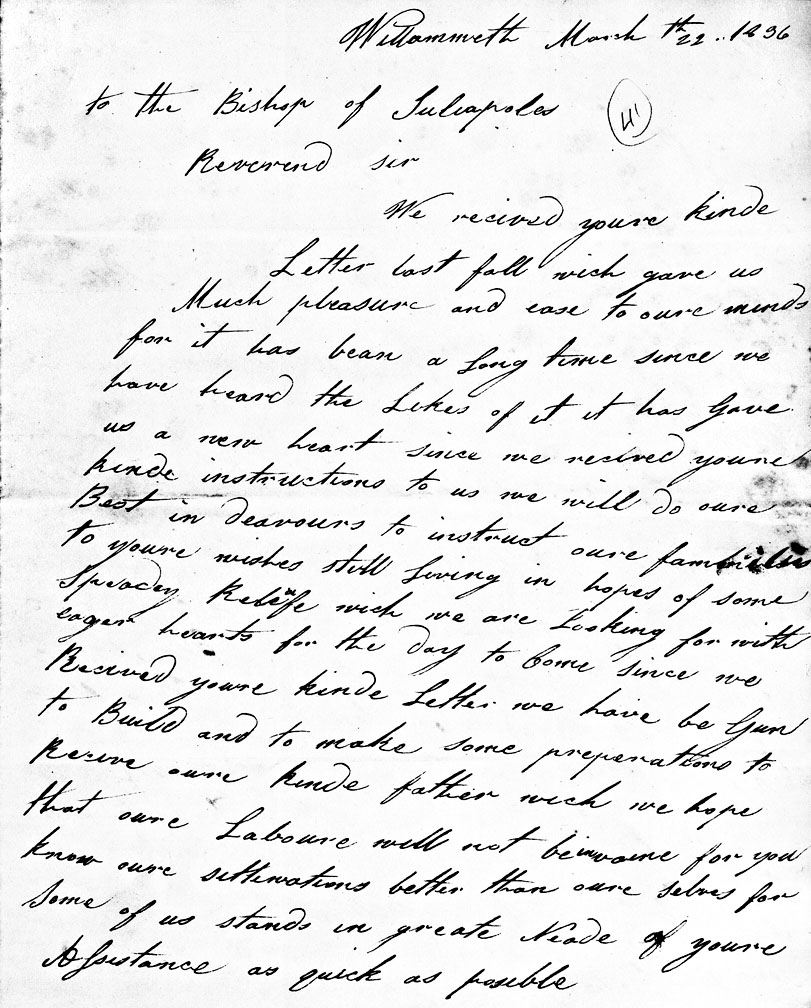 Willammeth March 22th.. 1836
to the Bishop of Juliapoles
41
Reverend sir
We recived youre kinde
Letter last fall wich gave us
Much pleasure and ease to oure minds
for it has bean a Long time since we
have heard the Likes of it it has Gave
us a new heart since we recived youre
kinde instructions to us we will do oure
Best in deavours to instruct oure families
to youre wishes still Living in hopes of some
Speadey Releife wich we are Looking for with
eager hearts for the day to Come since we
Recived youre kinde Letter we have be Gun
to Build and to make some preperations to
Recive oure kinde father wich we hope
that oure Laboure will not be in vaine for you
know oure sittuvations better than oure selves for
Some of us stands in greate Neade of youre
Assistance as quick as posible